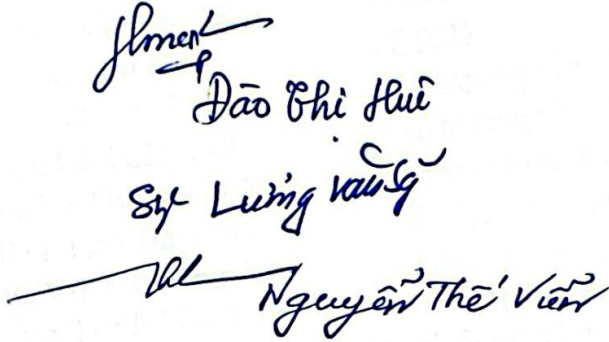 Đào Thị Huê
Sỹ Lường Văn Sỹ
Nguyễn Thế Viễn